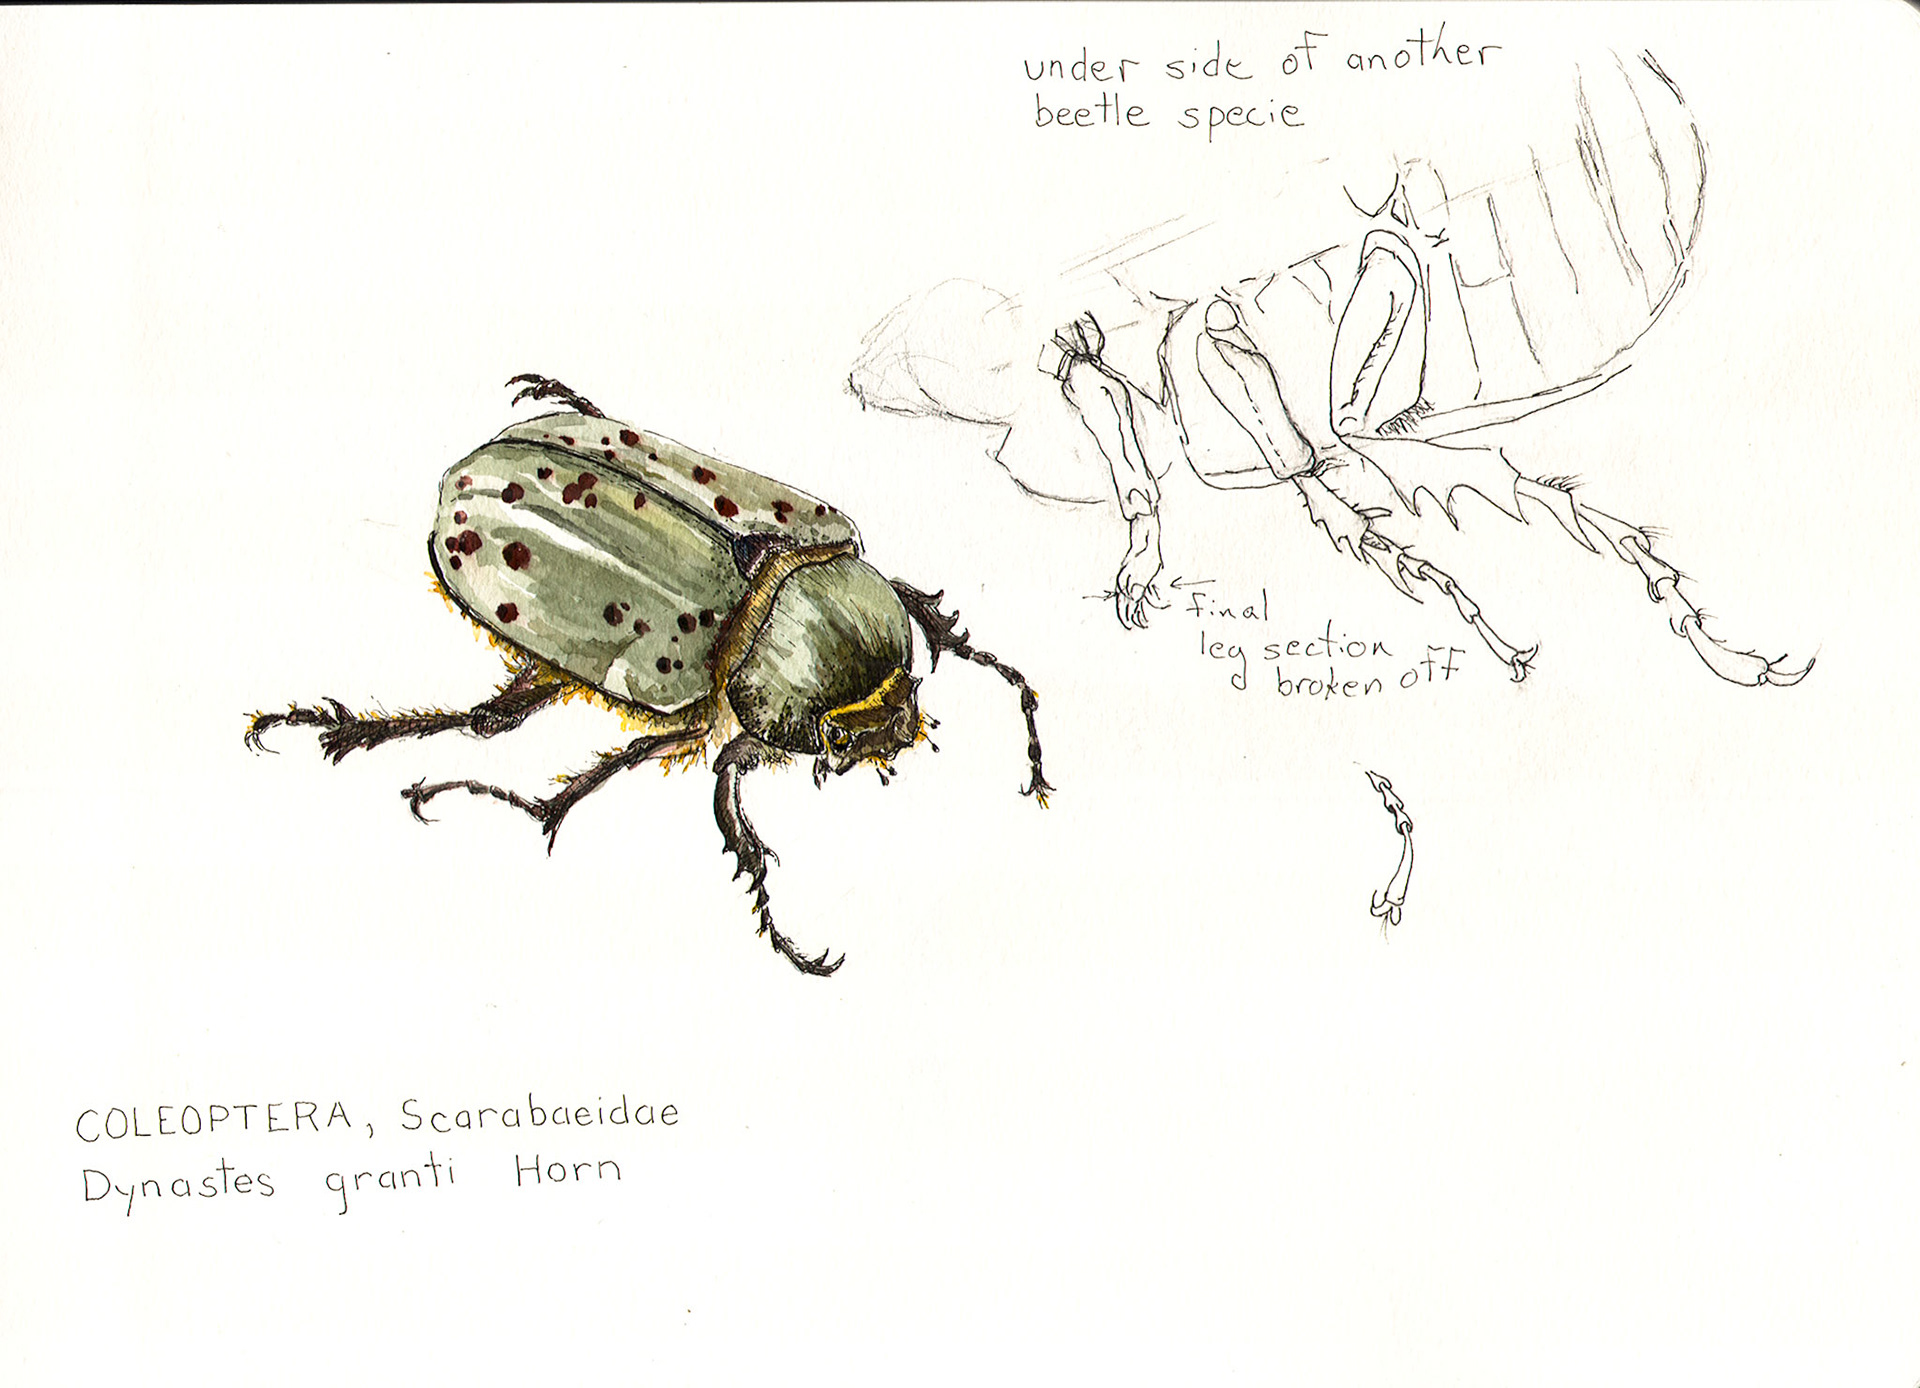 under side of another
beetle specie
final
leg section
broken off
COLEOPTERA, Scarabaeidae
Dynastes granti Horn